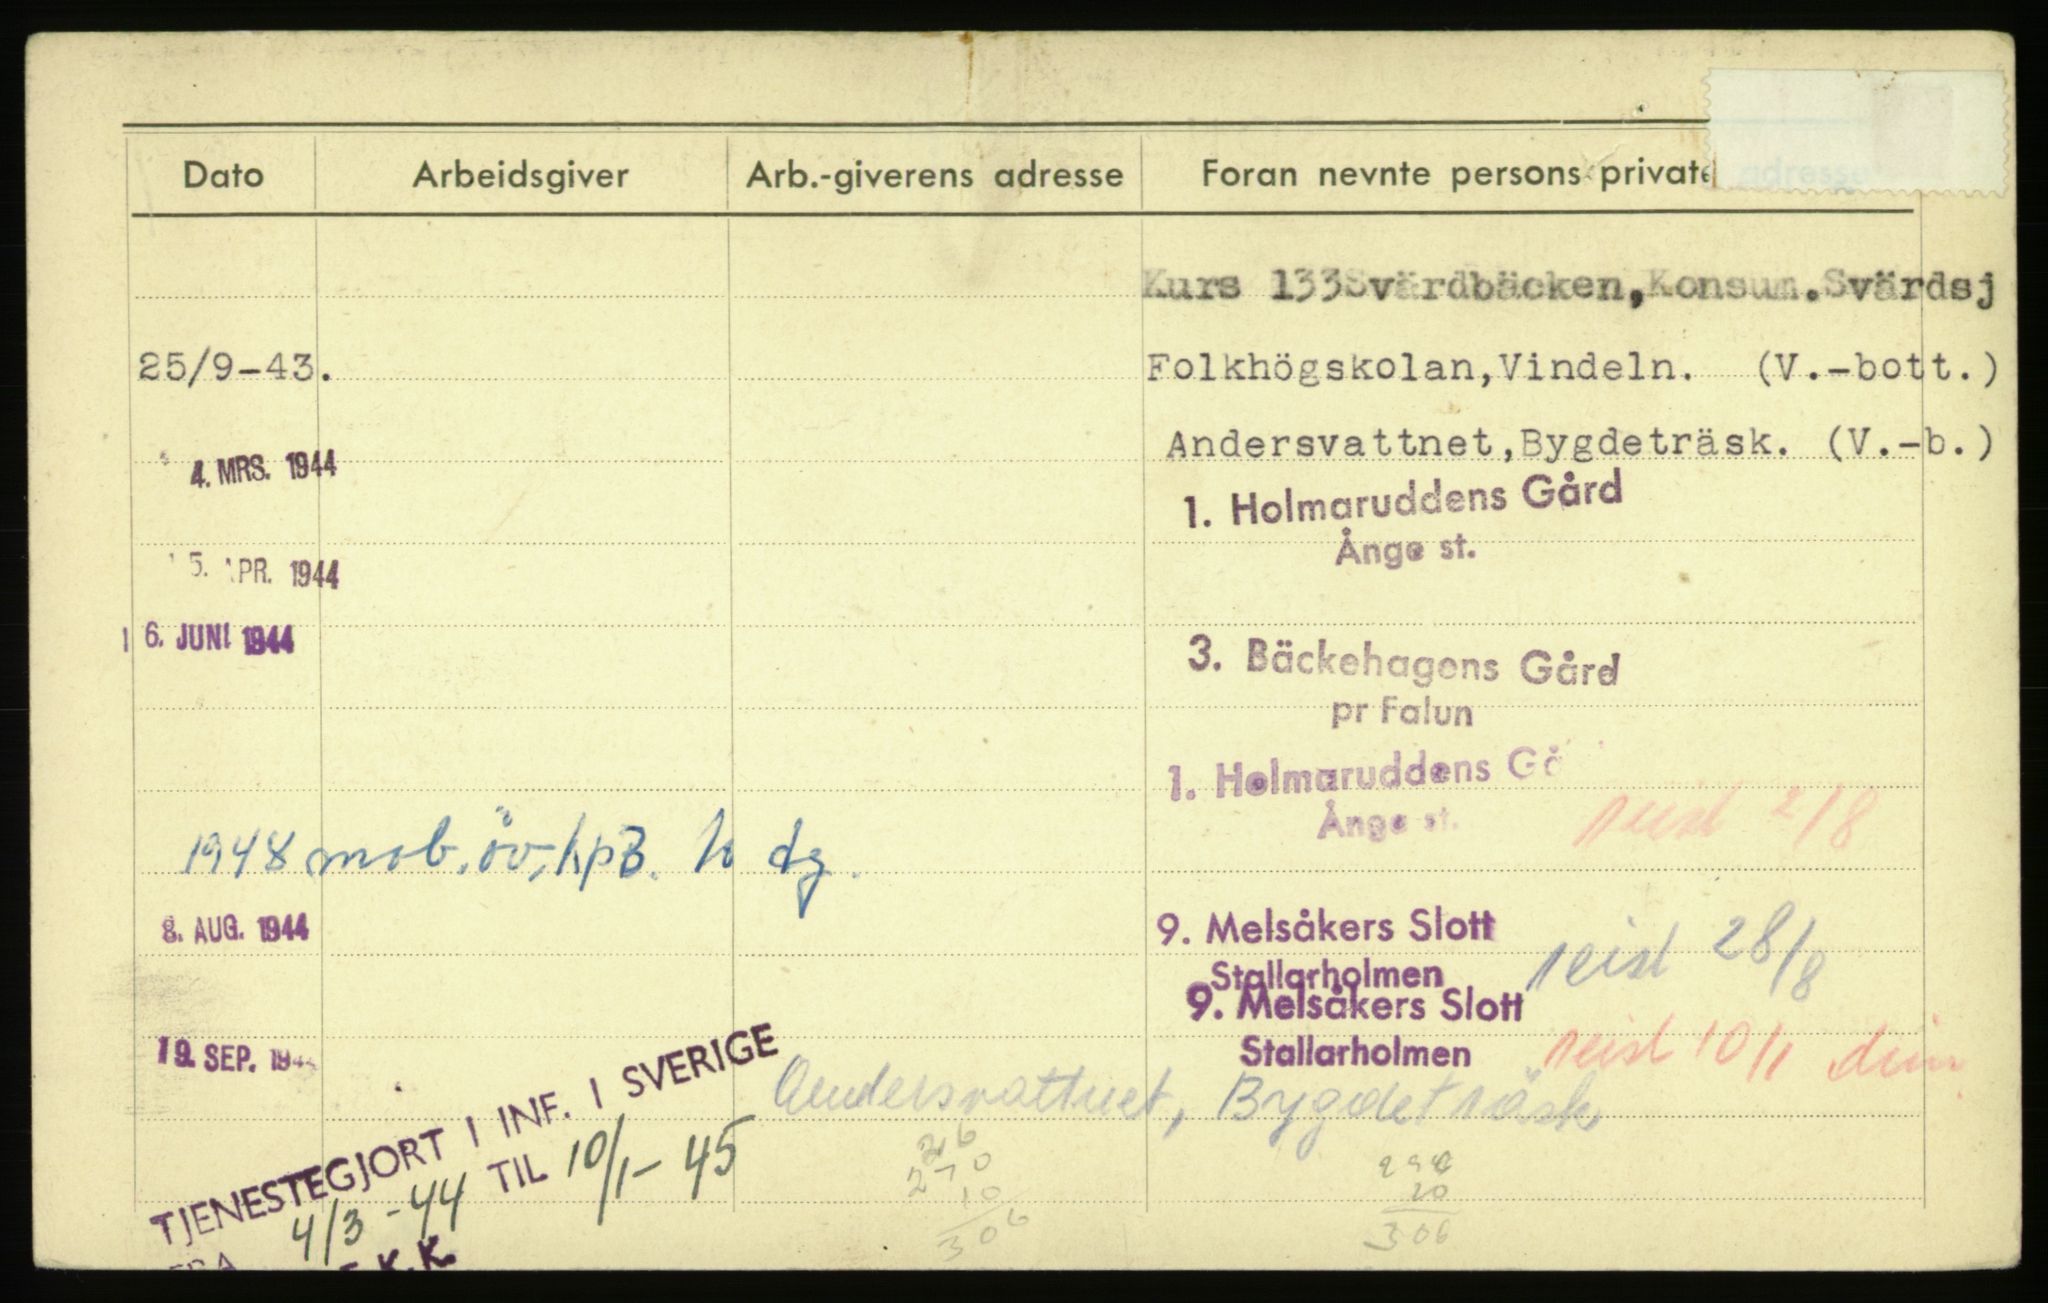 Dato Arbeidsgiver Arb.-giverens adresse Foran nevnte persons private adresse
Kurs 133Svärdbäcken,Konsum.Svärdsj
25/9-43. Folkhögskolan,Vindeln. (V.-bott.)
Andersvattnet,Bygdeträsk. (V.-b.)
4. MRS. 1944
1. Holmaruddens Gård
Ånge st.
5. APR. 1944
16. JUNI 1944
3. Bäckehagens Gård
pr Falun
1. Holmaruddens Gå
Ånge st. reist 2/8
1948 mob.öv, kpB. 10 dg.
8. AUG. 1944 9. Melsåkers Slott
Stallarholmen reist 28/8
9. Melsåkers Slott
19. SEP. 1944 Stallarholmen reist 10/1 dim
Andersvattnet, Bygdeträsk
TJENESTEGJORT I INF. I SVERIGE
FRA 4/3-44 TIL 10/1-45
K.K.
26
270
10
306
20
306